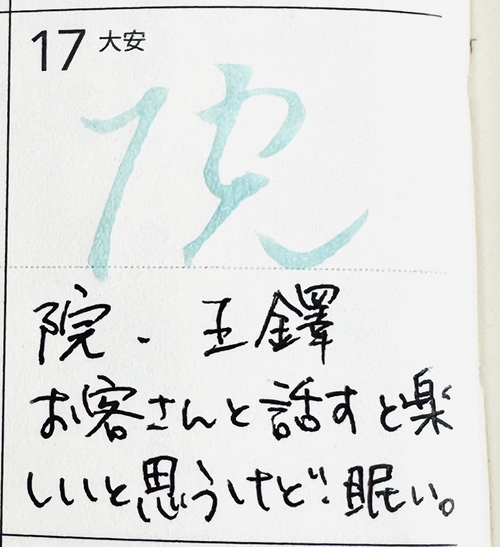 17 大安
院
院．王鐸
お客さんと話すと楽
しいと思うけど、眠い。